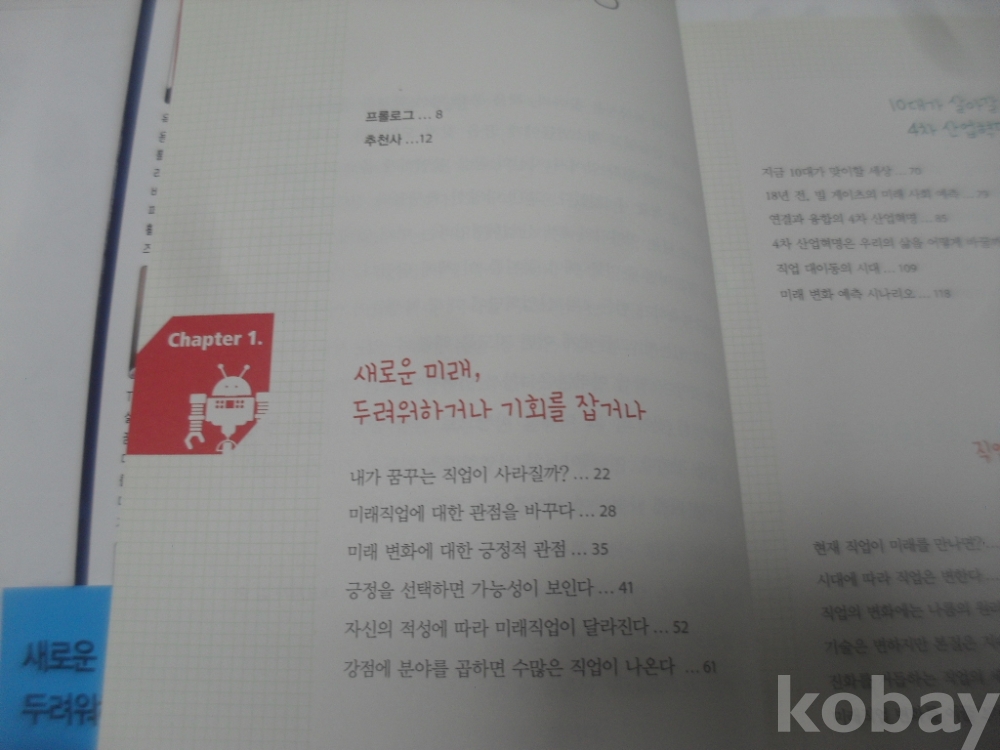 프롤로그 ... 8
추천사 ...12
Chapter 1.
새로운 미래,
두려워하거나 기회를 잡거나
내가 꿈꾸는 직업이 사라질까? ... 22
미래직업에 대한 관점을 바꾸다 ... 28
미래 변화에 대한 긍정적 관점 ... 35
긍정을 선택하면 가능성이 보인다 ... 41
자신의 적성에 따라 미래직업이 달라진다 ... 52
강점에 분야를 곱하면 수많은 직업이 나온다 ... 61
10대가 살아갈
4차 산업혁
지금 10대가 맞이할 세상 ... 70
18년 전, 빌 게이츠의 미래 사회 예측 ... 79
연결과 융합의 4차 산업혁명 ... 85
4차 산업혁명은 우리의 삶을 어떻게 바꿀까
직업 대이동의 시대 ... 109
미래 변화 예측 시나리오 ... 118
직업
현재 직업이 미래를 만나면? ...
시대에 따라 직업은 변한다 ...
직업의 변화에는 나름의 원리
기술은 변하지만 본질은
직업의
새로운
두려워
kobay